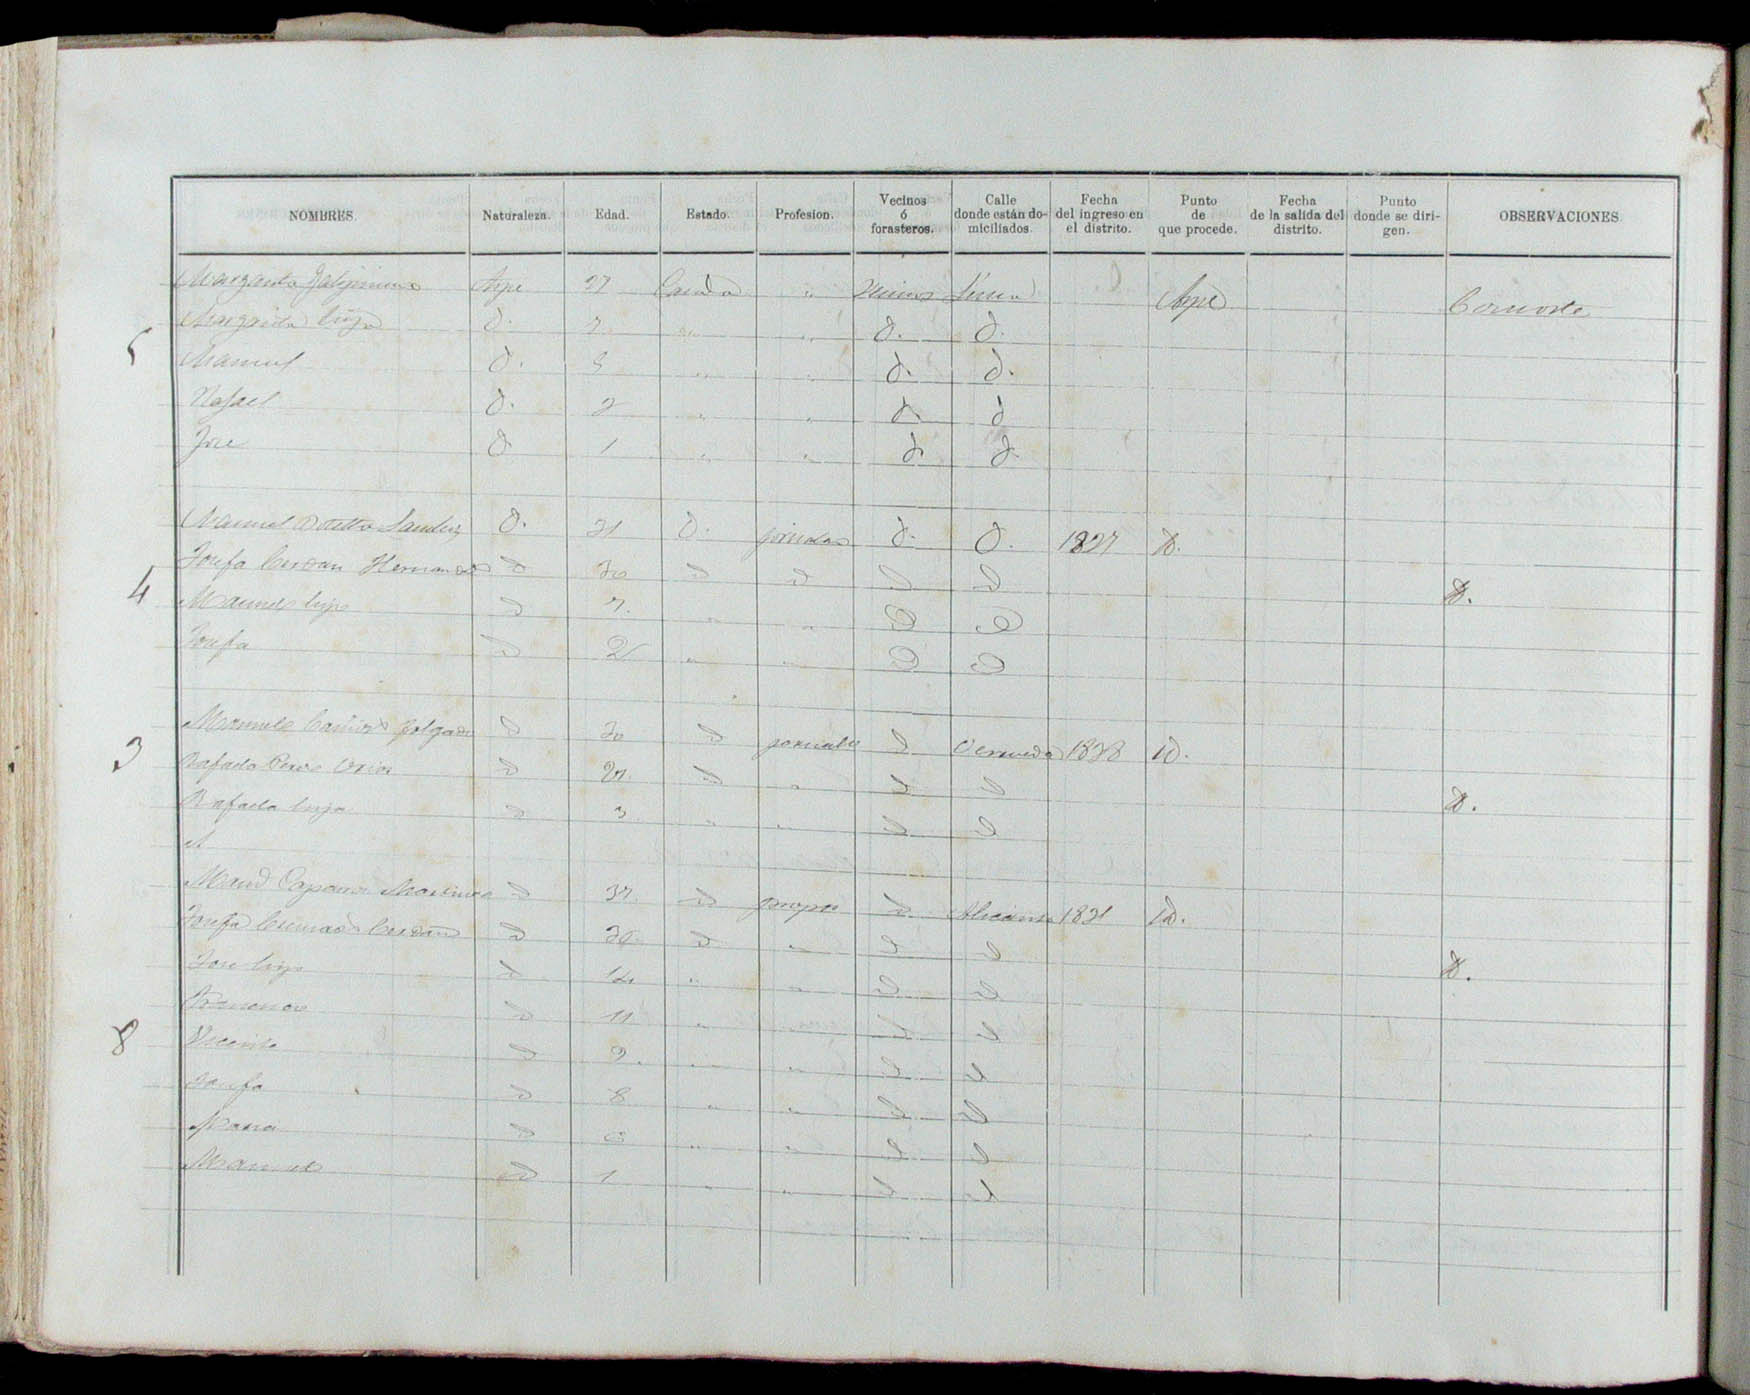 NOMBRES. Naturaleza. Edad. Estado. Profesion. Vecinos ó forasteros. Calle donde están domiciliados. Fecha del ingreso en el distrito. Punto de que procede. Fecha de la salida del distrito. Punto donde se dirigen. OBSERVACIONES
Margarita Aspe 27 Casada " Vecinos Aspe Consorte
Margarita hija d. 7 " " d. d.
5
Manuel d. 5 " " d. d.
Rafael d. 2 " " d. d
Jose d 1 " " d. d.
Manuel Botella Sanchez d. 31 d. jornalero d. d. 1827 D.
Josefa Cerdan Hernandez d 30 d d d d D.
4
Manuel hijo d 7. " " d d
Josefa d 2 " " d d
Manuel d 30 d jornalero d 1828 D.
3
Rafaela Perez d 27. d " d d D.
Rafaela hija d 3 " " d d
Man.l Martinez d 37. d d Alicante 1831 D.
Josefa Cerdan d d " d d D.
Jose hijo d 14 " " d d
Francisco d 11 " " d d
8
Vicente d 9. " " d d
Josefa d 8 " " d d
Maria d 6 " " d d
Manuel d 1 " " d d